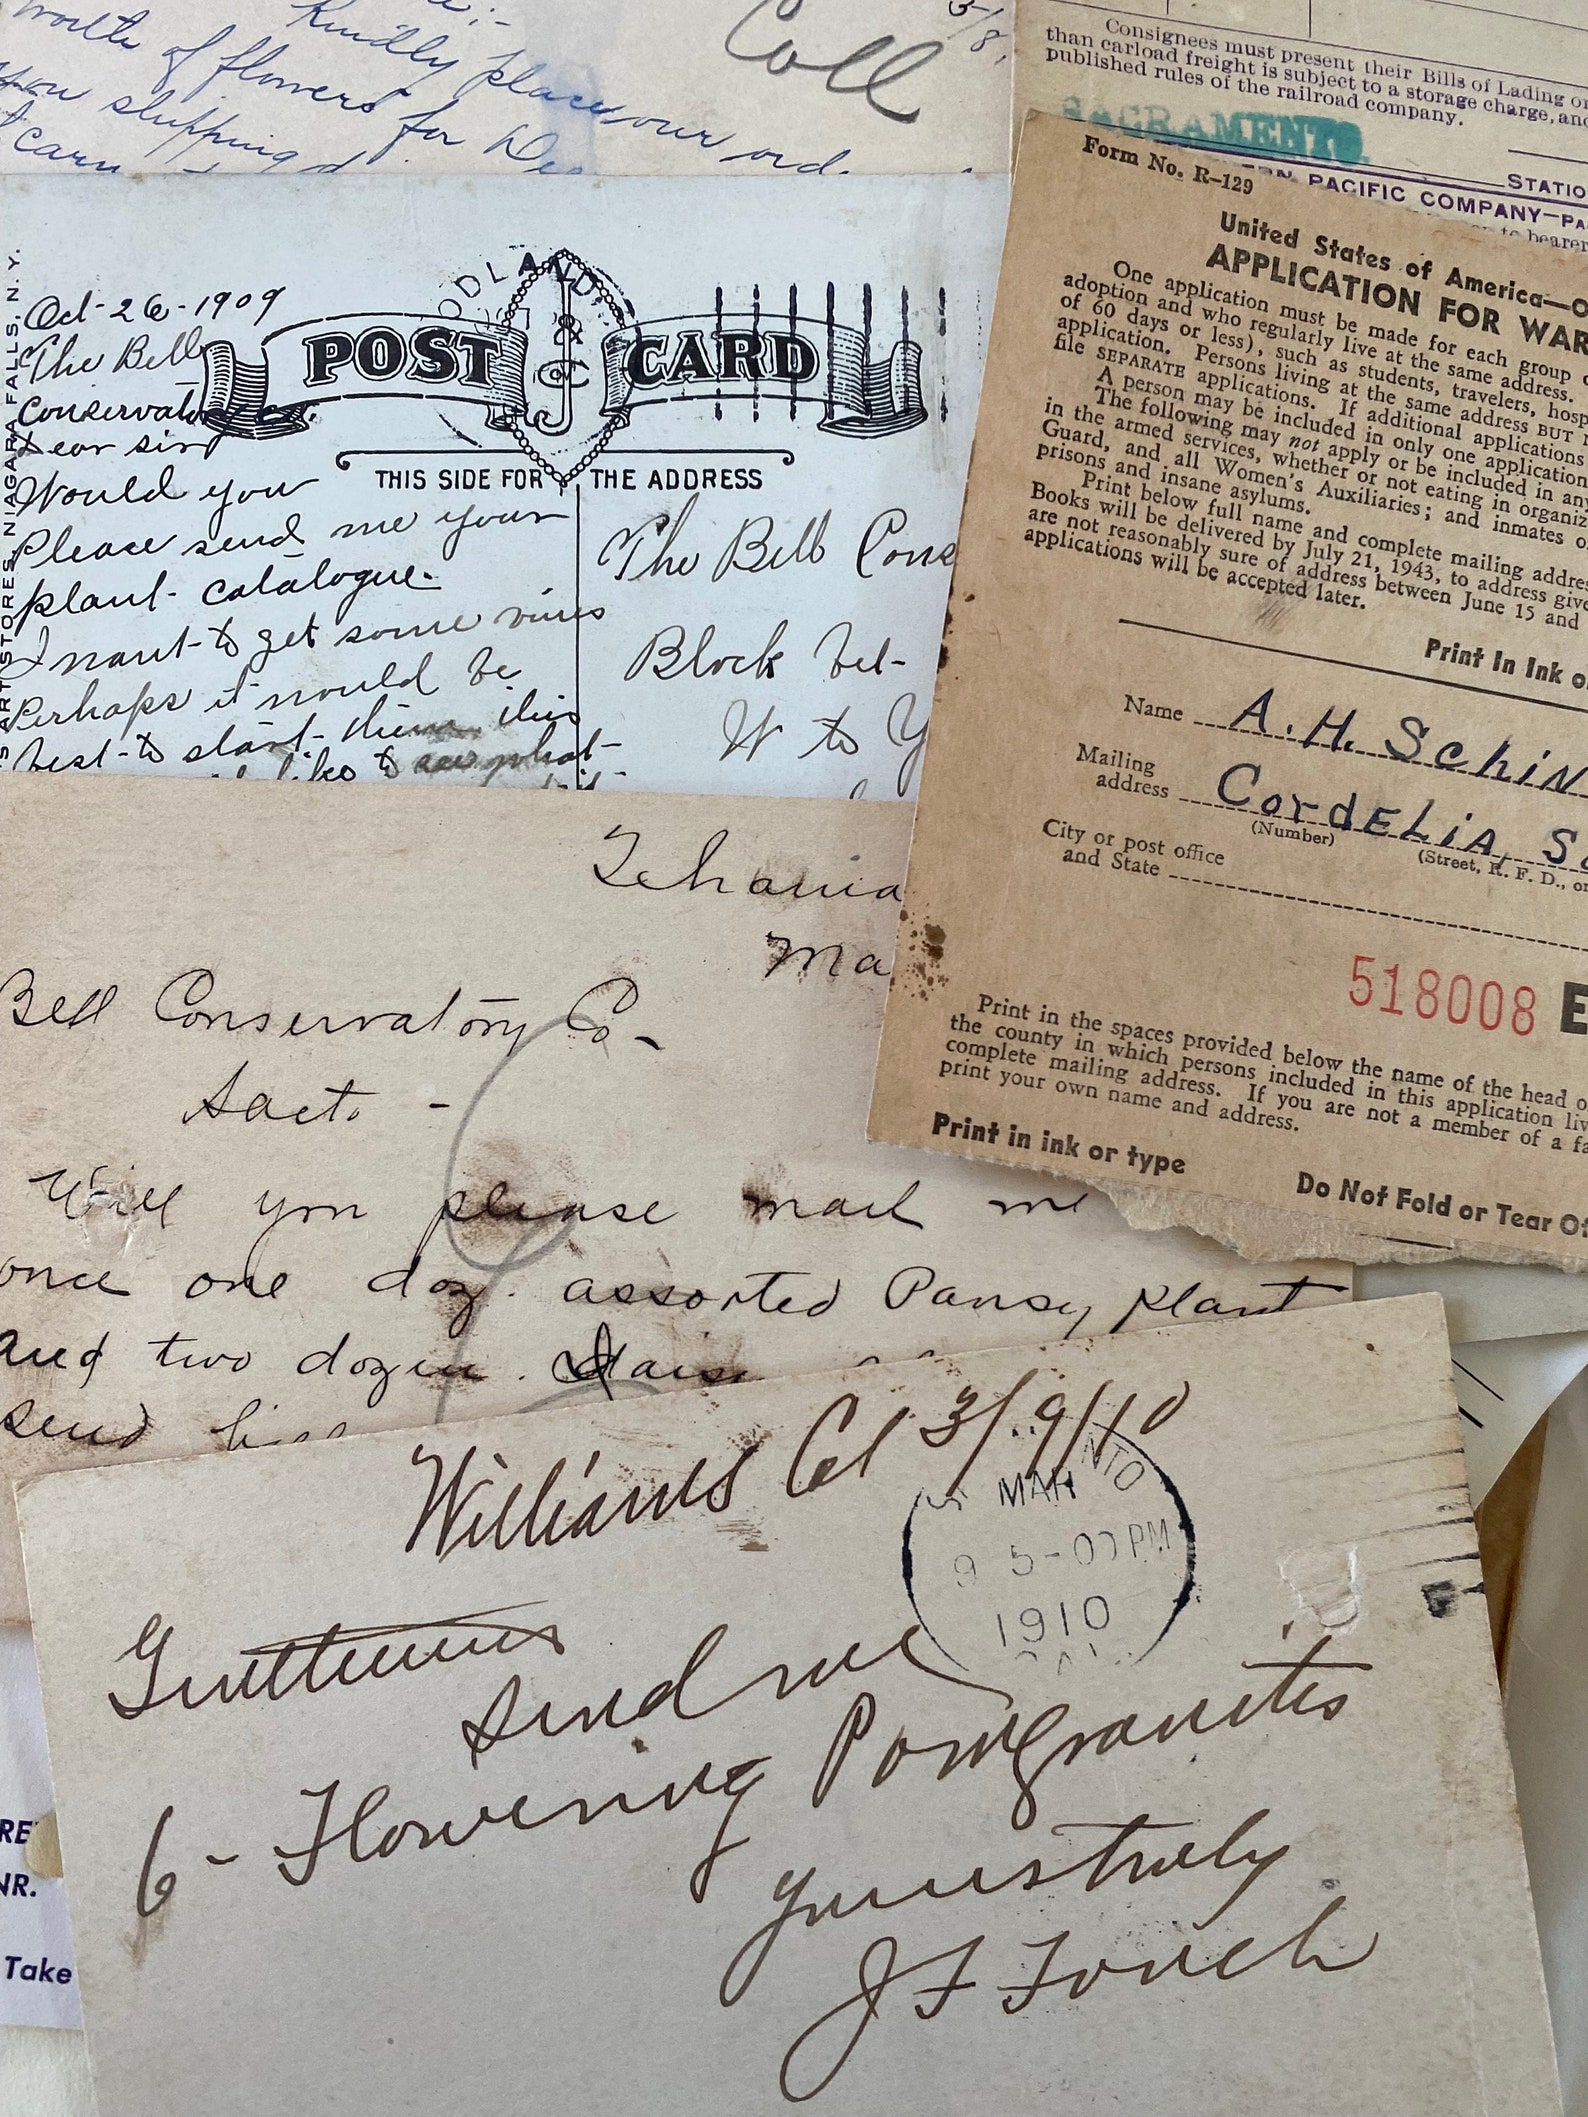 Kindly place your ord
worth of flowers for De
you shipping
Coll
3/8,
Consignees must present their Bills of Lading or
than carload freight is subject to a storage charge, and
published rules of the railroad company.
SACRAMENTO.
STATIO
RN PACIFIC COMPANY—PA
to bearer
ART STORES, NIAGARA FALLS, N.Y.
Oct-26-1909
The Bell
Conservatory co.
Dear sir
Would you
Please send me your
plant-catalogue.
I want-to get some vines
Perhaps it would be
best-to start-them this
like to see what-
POST CARD
ODLAND
THIS SIDE FOR THE ADDRESS
The Bell Cons
Block bet-
W to Y
Form No. R-129
United States of America—O
APPLICATION FOR WAR
One application must be made for each group
adoption and who regularly live at the same address.
of 60 days or less), such as students, travelers, hosp
application. Persons living at the same address BUT
file SEPARATE applications. If additional applications
A person may be included in only one application
The following may not apply or be included in any
in the armed services, whether or not eating in organiz
Guard, and all Women's Auxiliaries; and inmates o
prisons and insane asylums.
Print below full name and complete mailing addres
Books will be delivered by July 21, 1943, to address give
are not reasonably sure of address between June 15 and
applications will be accepted later.
Print In Ink o
Name A. H. Schin
Mailing
address CordELiA, S
(Number) (Street, R. F. D., or
City or post office
and State
518008 E
Print in the spaces provided below the name of the head o
the county in which persons included in this application liv
complete mailing address. If you are not a member of a fa
print your own name and address.
Print in ink or type
Do Not Fold or Tear Of
Tehama
Ma
Bell Conservatory Co-
Sact. -
Will you please mail me
once one doz. assorted Pansy plant
and two dozen. Dais
send
Williams Cal 3/9/10
NTO
MAR
9 5-00 PM
1910
CAL
Gentlemens
Send me
6-Flowering Pomgranites
Yourstruly
J F Fouch
RE
NR.
Take